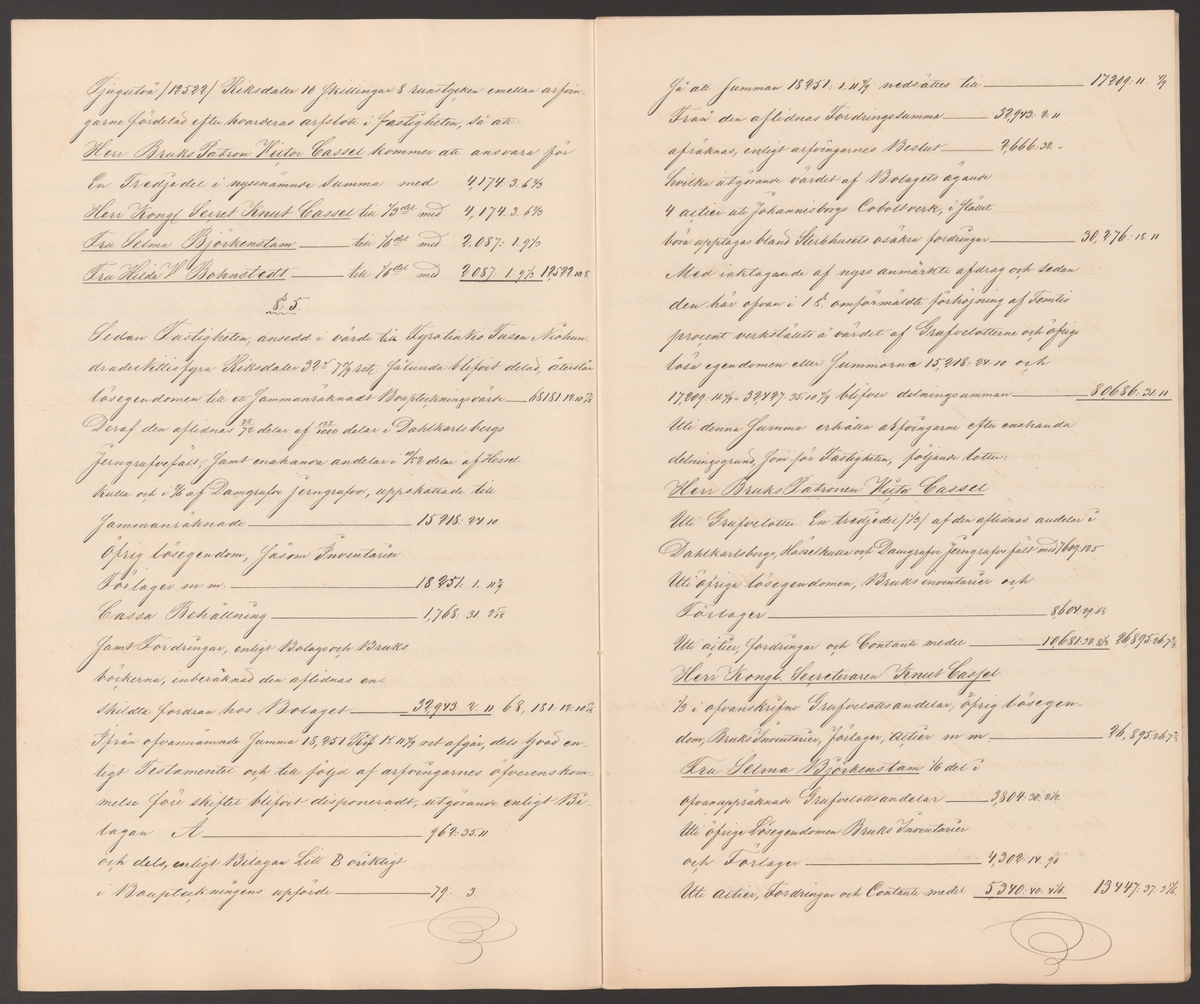 Tjugutvå /12522/ Riksdaler 10 skillingar 8 runstycken emellan arfvin-
garne fördelad efter hvarderas arfslott i fastigheten, så att
Herr BruksPatron Victor Cassel kommer att ansvara för
En Tredjedel i nyssnämnde summa med 4,174. 3. 6 2/3
Herr Kongl. Secret Knut Cassel till 1/3del med 4,174. 3. 6 2/3
Fru Selma Björkenstam till 1/6del med 2.087: 1. 9 1/3
Fru Hilda W Bohnstedt till 1/6del med 2.087. 1. 9 1/3 12522.10.8
§. 5.
Sedan Fastigheten, ansedd i värde till Fyratiutio Tusen Niohun-
dradeNittiofyra Riksdaler 32 s 7 rst, sålunda blifvit delad, återstår
lösegendomen till ett sammanräknadt Bouppteckningsvärde 68181.12.10
Deraf den aflidnas delar af delar i Dahlkarlsbergs
Jerngrufvefält, samt enahanda andelar i delar af Hessel
kulla och i af Damgrufve jerngrufvor, uppskattade till
sammanräknade 15218. 24 10
Öfrig lösegendom, såsom Inventarier
Förlager m. m. 18251. 1. 11
Cassa Behållning 1,768. 31.
samt Fordringar, enligt Bolags och Bruks
böckerna, inberäknad den aflidnas en-
skildta fordran hos Bolaget 32,943. 2. 11 68,181.12.10
Ifrån ofvannämnde summa 18,251 Rd 1 s 11 rst afgår, dels hvad en-
ligt Testamentet och till följd af arfvingarnes öfverenskom-
melse före skiftet blifvit disponeradt, utgörande enligt Bi-
lagan A 962. 35 11
och dels, enligt Bilagan Litt B oriktigt
i Bouppteckningens uppförde 79. 3.
så att summan 18251. 1. 11 nedsättes till 17209. 11.
Från den aflidnas Fordringssumma 32,943. 2. 11
afräknas, enligt arfvingarnes Beslut 2,666: 32. -
hvilka utgörande värdet af Bolagets ägande
4 actier uti Johannisbergs Coboltverk, i stället
böra upptagas bland Sterbhusets osäkra fordringar 30,276: 18. 11
Med iakttagande af nyss anmärkte afdrag och sedan
den här ofvan i 1 §. omförmäldte förhöjning af Femtio
procent verkställts å värdet af Grufvelotterne och öfrige
lösa egendomen eller summorna 15,218. 24. 10 och
17209. 11 = 32,427. 35. 10 blifver delningssumman 80,686. 31. 11
Uti denna summa erhålla arfvingarne efter enahanda
delningsgrund, som för Fastigheten, följande lotter:
Herr BruksPatronen Victor Cassel
Uti Grufvelotter: En tredjedel /1/3/ af den aflidnas andelar i
Dahlkarlsbergs, Hässelkulla och Damgrufve Jerngrufve fält med 7609. 12 5
Uti öfriga lösegendomen, Bruksinventarier och
Förlager 8,604. 29.
Uti actier, fordringar och Contante medel 10,681. 32. 26,895. 26. 7
Herr Kongl. Secreteraren Knut Cassel
1/3 i ofvanskrifne Grufvelottsandelar, öfrig lösegen-
dom, Bruks Inventarier, Förlager, actier m m 26,895. 26. 7
Fru Selma Björkenstam 1/6 del i
ofvanuppräknade Grufvelottsandelar 3,804. 30. 2 1/2
Uti öfrige Lösegendomen Bruks Inventarier
och Förlager 4,302. 14.
Uti actier, Fordringar och Contante medel 5,340. 40. 13447. 37. 3